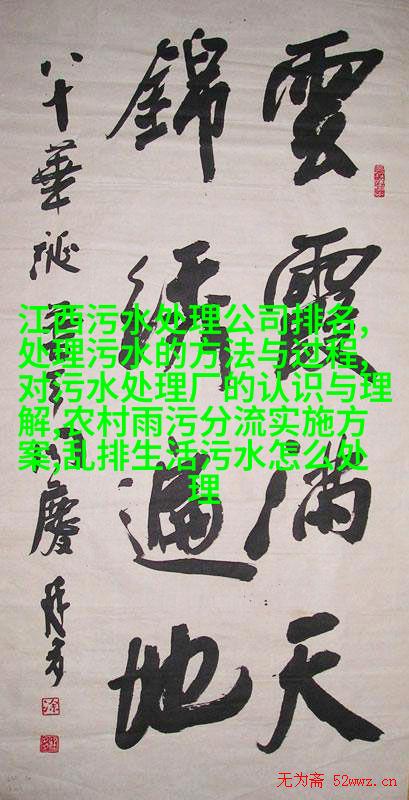 雲霞满天
錦绣遍地
八十華诞
慶
江西污水处理公司排名,
处理污水的方法与过程,
对污水处理厂的认识与理
解,农村雨污分流实施方
案,乱排生活污水怎么处
理
无为斋 52wwz.cn